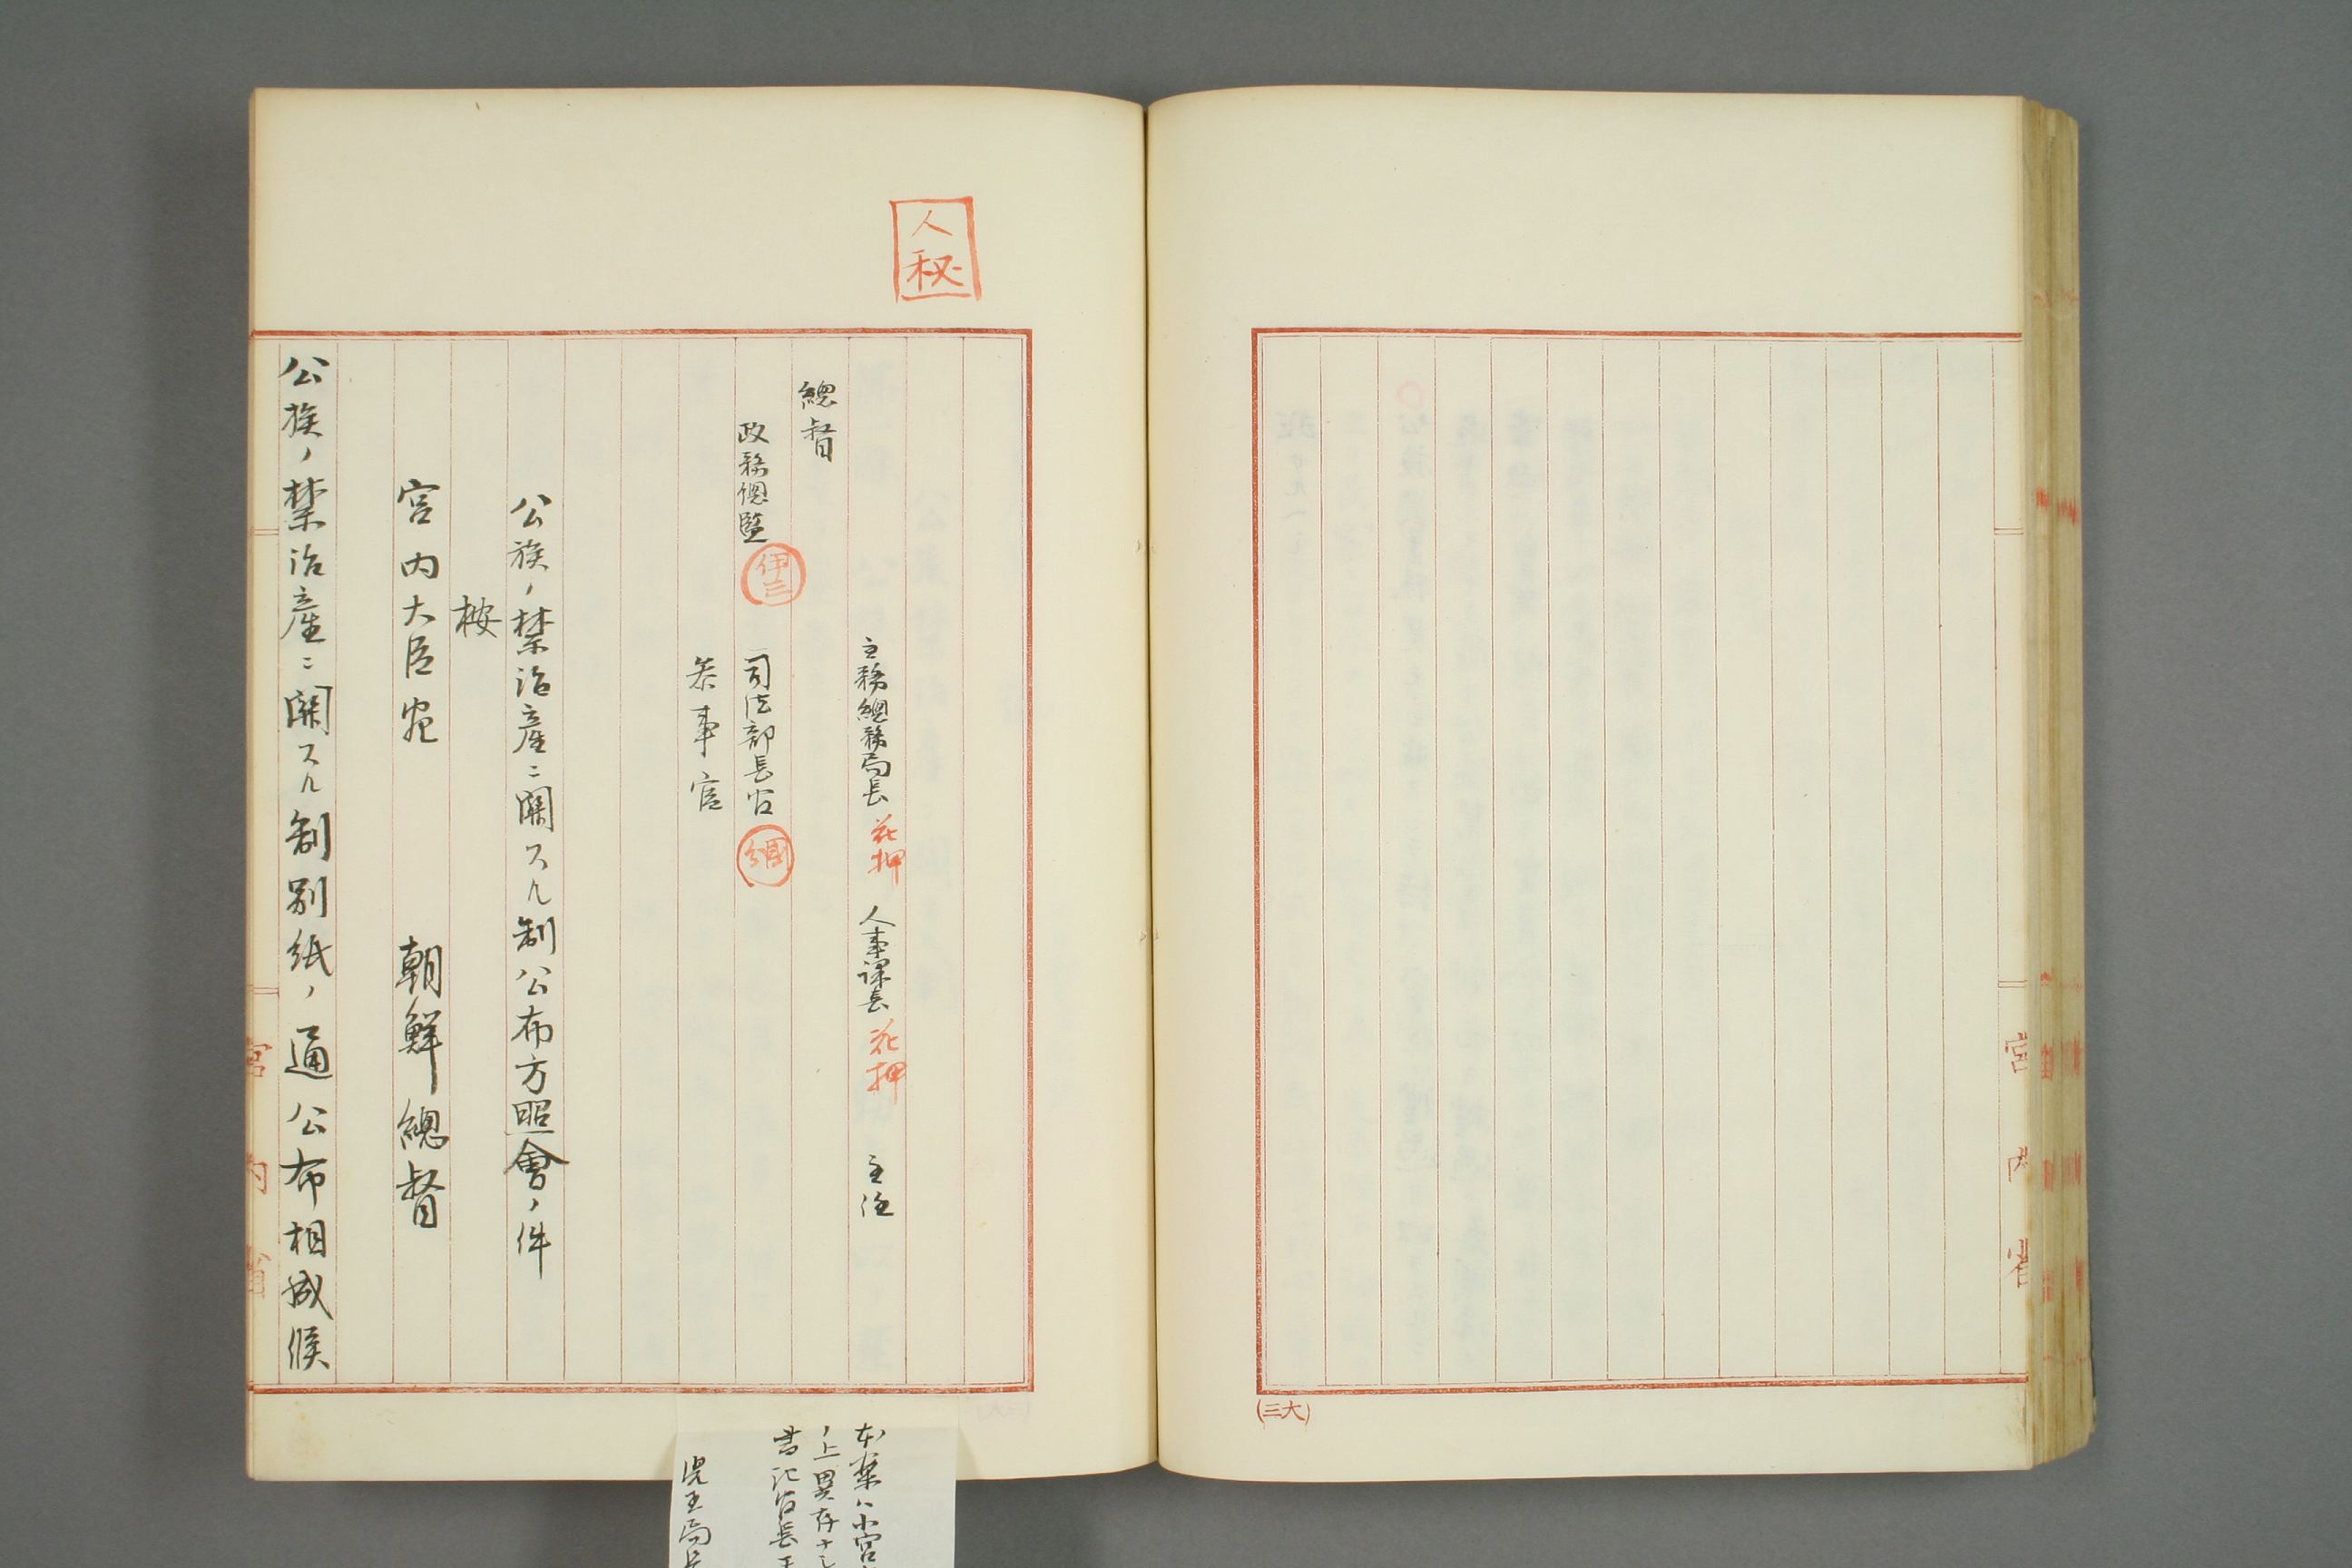 宮内省
(三大)
人秘
主務總務局長 花押 人事課長 花押 主任
總督
政務總監 伊三 司法部長官 國
参事官
公族ノ禁治産ニ關スル制公布方照會ノ件
按
宮内大臣宛 朝鮮總督
公族ノ禁治産ニ關スル制別紙ノ通公布相成候
宮内省
本案ハ小宮
ノ上異存ナシ
書記官長
局長